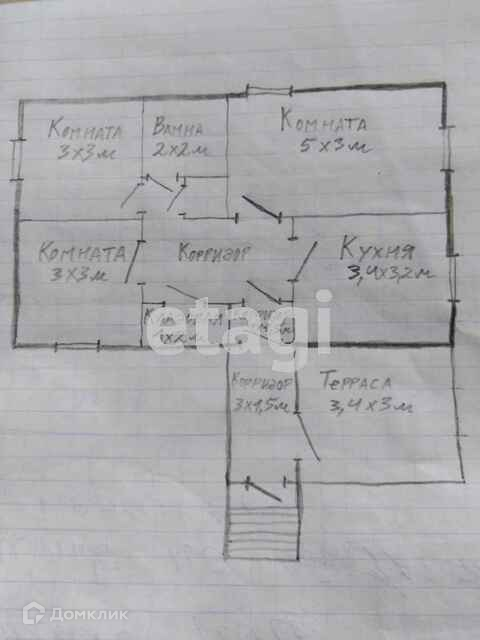 Комната
3х3м
Ванна
2х2м
Комната
5х3м
Комната
3х3м
Корридор
Кухня
3,4х3,2м
etagi
Корридор
3х1,5м
Терраса
3,4х3м
Домклик